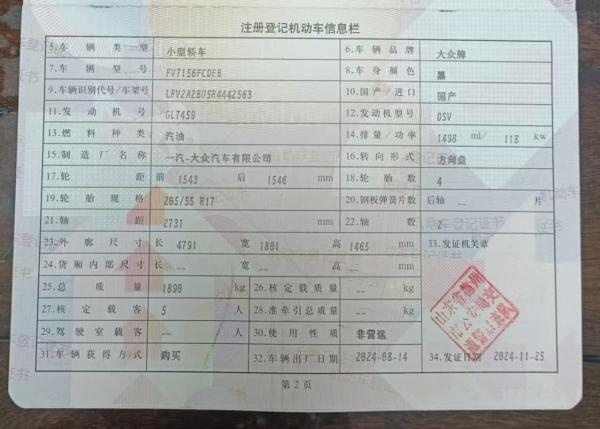 注册登记机动车信息栏
5.车辆类型 小型轿车 6.车辆品牌 大众牌
7.车辆型号 FV7156FCDEB 8.车身颜色 黑
9.车辆识别代号/车架号 LFV2AZBU5R4442563 10.国产/进口 国产
11.发动机号 GL7459 12.发动机型号 DSV
13.燃料种类 汽油 14.排量/功率 1498 ml/ 118 kw
15.制造厂名称 一汽-大众汽车有限公司 16.转向形式 方向盘
17.轮距 前 1543 后 1546 mm 18.轮胎数 4
19.轮胎规格 205/55 R17 20.钢板弹簧片数 后轴 -- 片
21.轴距 2731 mm 22.轴数 2
23.外廓尺寸 长 4791 宽 1801 高 1465 mm 33.发证机关章
24.货厢内部尺寸 长 -- 宽 -- 高 -- mm
25.总质量 1890 kg 26.核定载质量 -- kg
27.核定载客 5 人 28.准牵引总质量 -- kg
29.驾驶室载客 -- 人 30.使用性质 非营运
31.车辆获得方式 购买 32.车辆出厂日期 2024-08-14 34.发证日期 2024-11-25
第2页